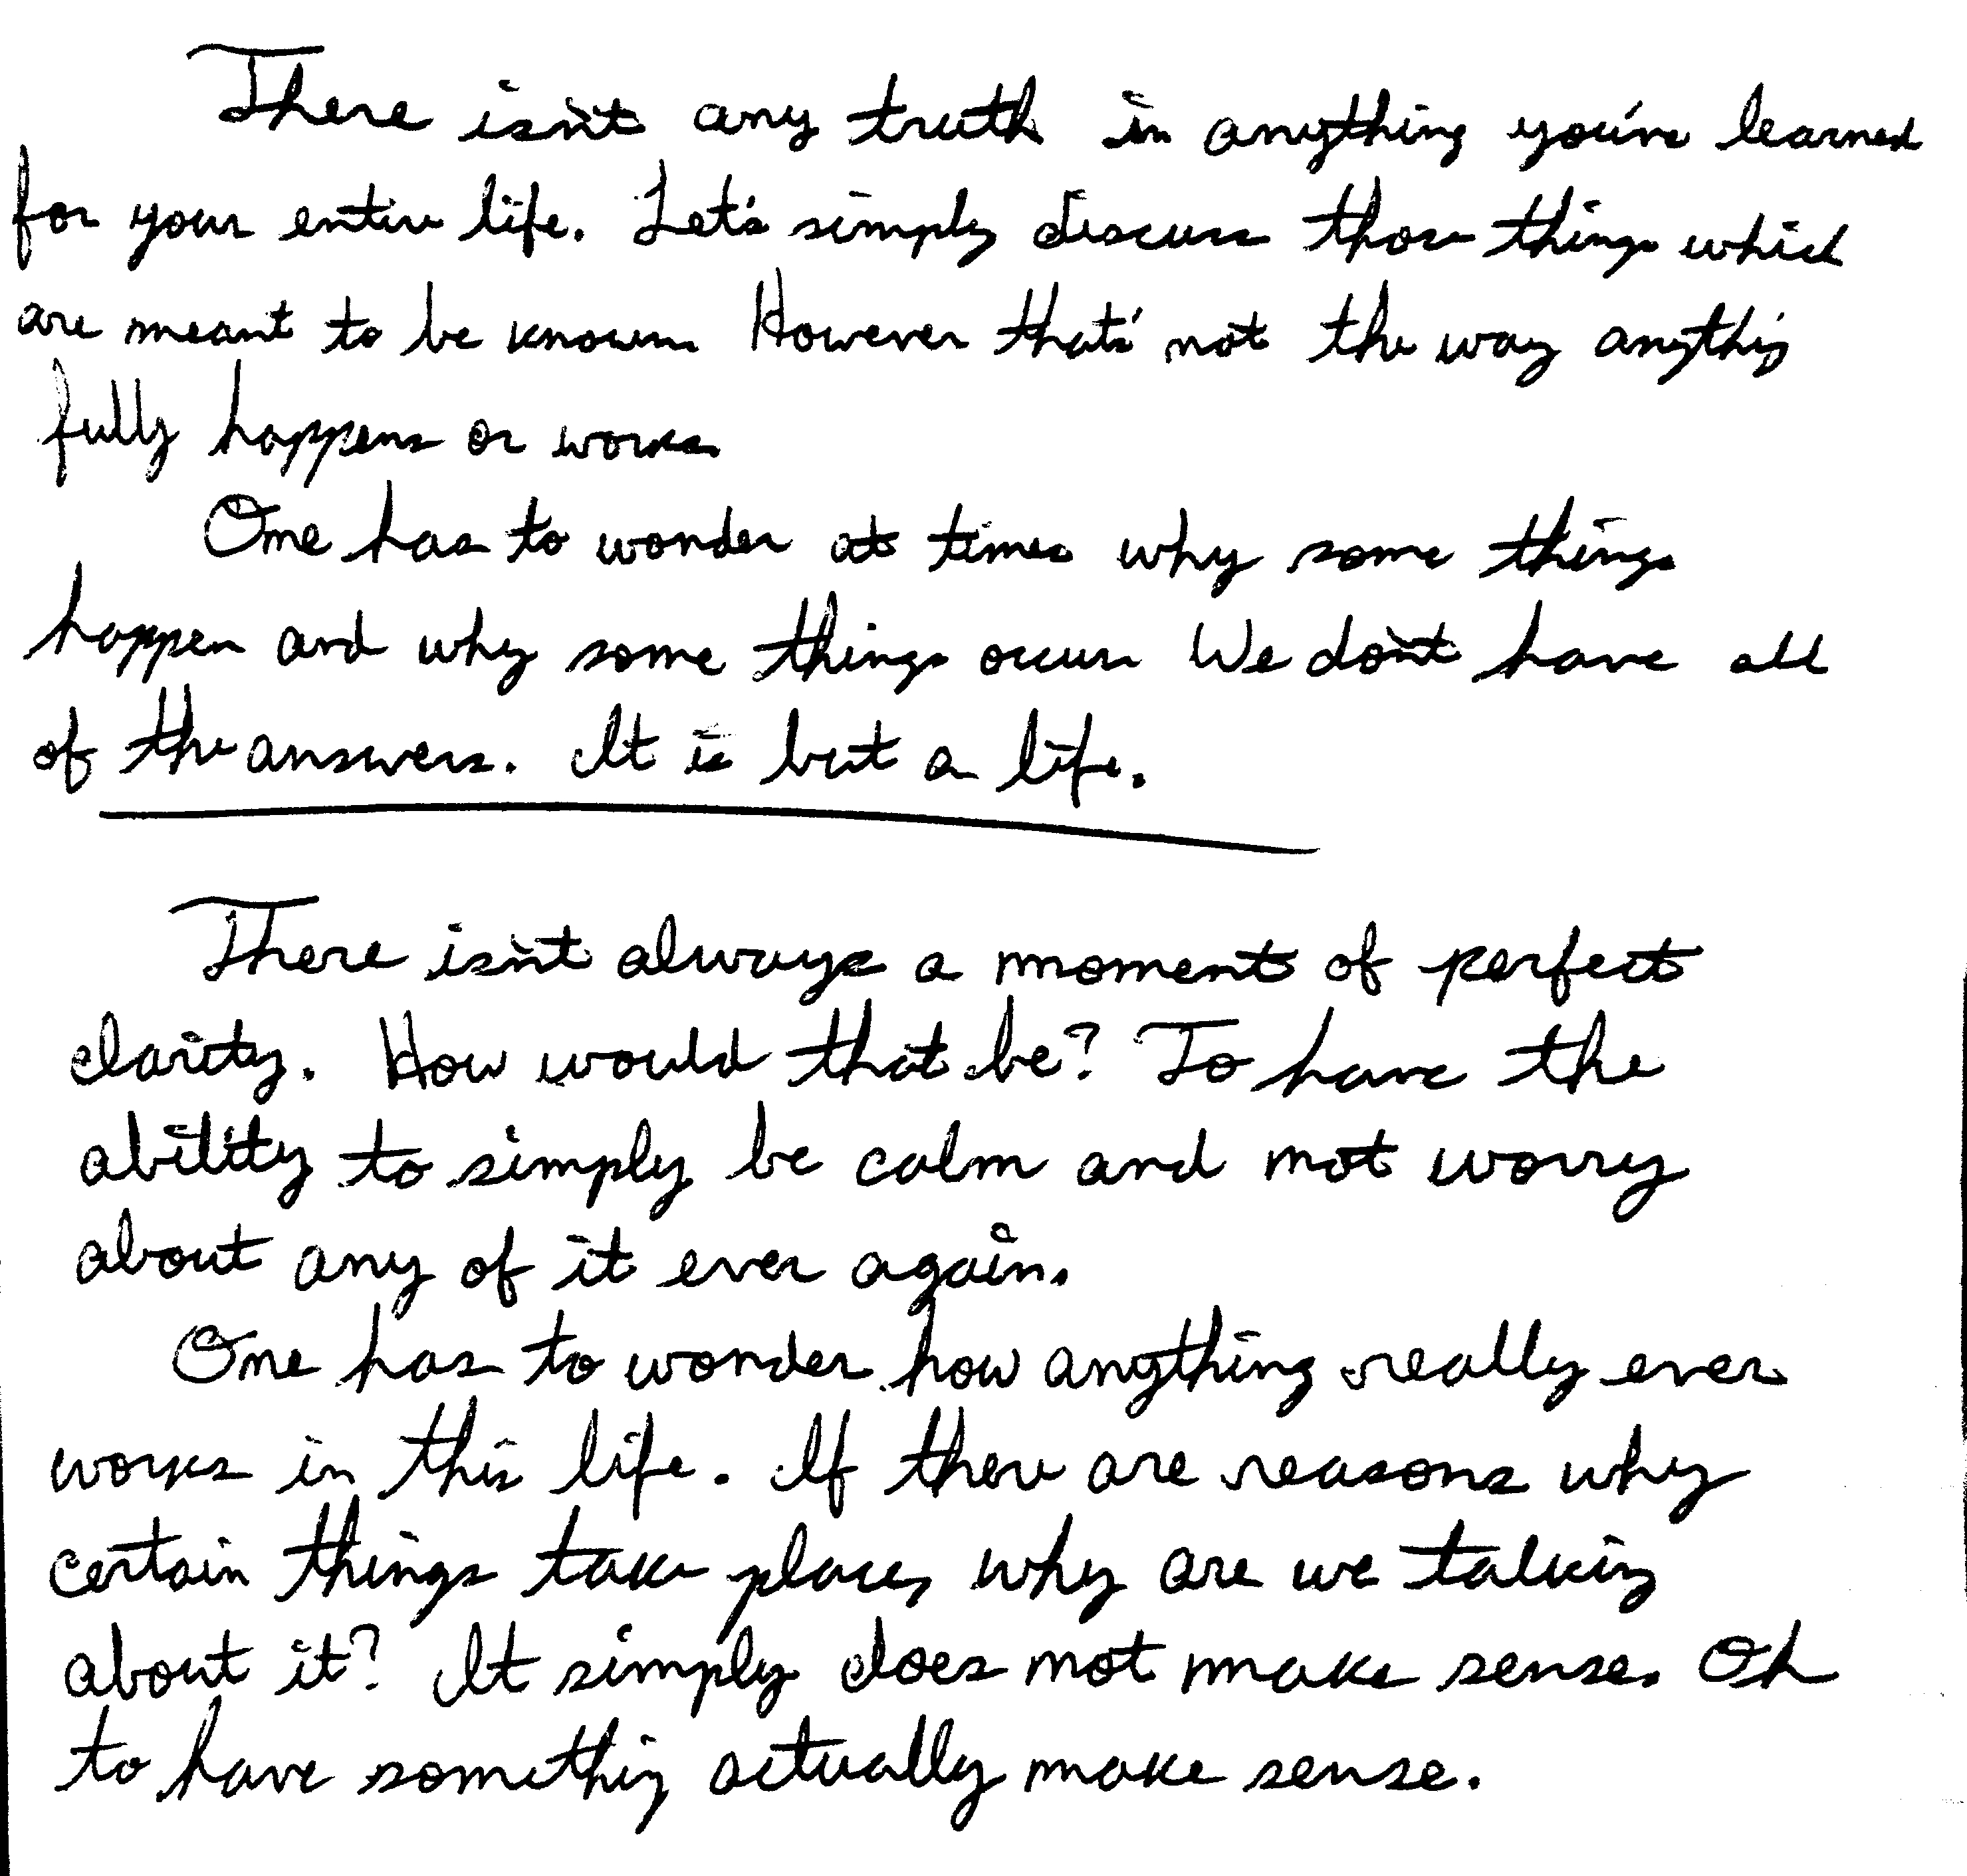 There isn't any truth in anything you've learned
for your entire life. Let's simply discuss those things which
are meant to be known. However that's not the way anything
fully happens or works.
One has to wonder at times why some things
happen and why some things occur. We don't have all
of the answers. It is but a life.
There isn't always a moment of perfect
clarity. How would that be? To have the
ability to simply be calm and not worry
about any of it ever again.
One has to wonder how anything really ever
works in this life. If there are reasons why
certain things take place, why are we talking
about it? It simply does not make sense. Oh
to have something actually make sense.